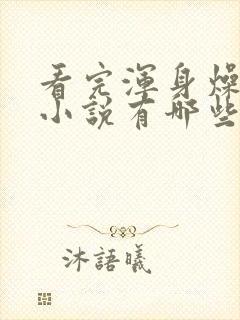 看完渾身燥
小說有哪些
沐語曦